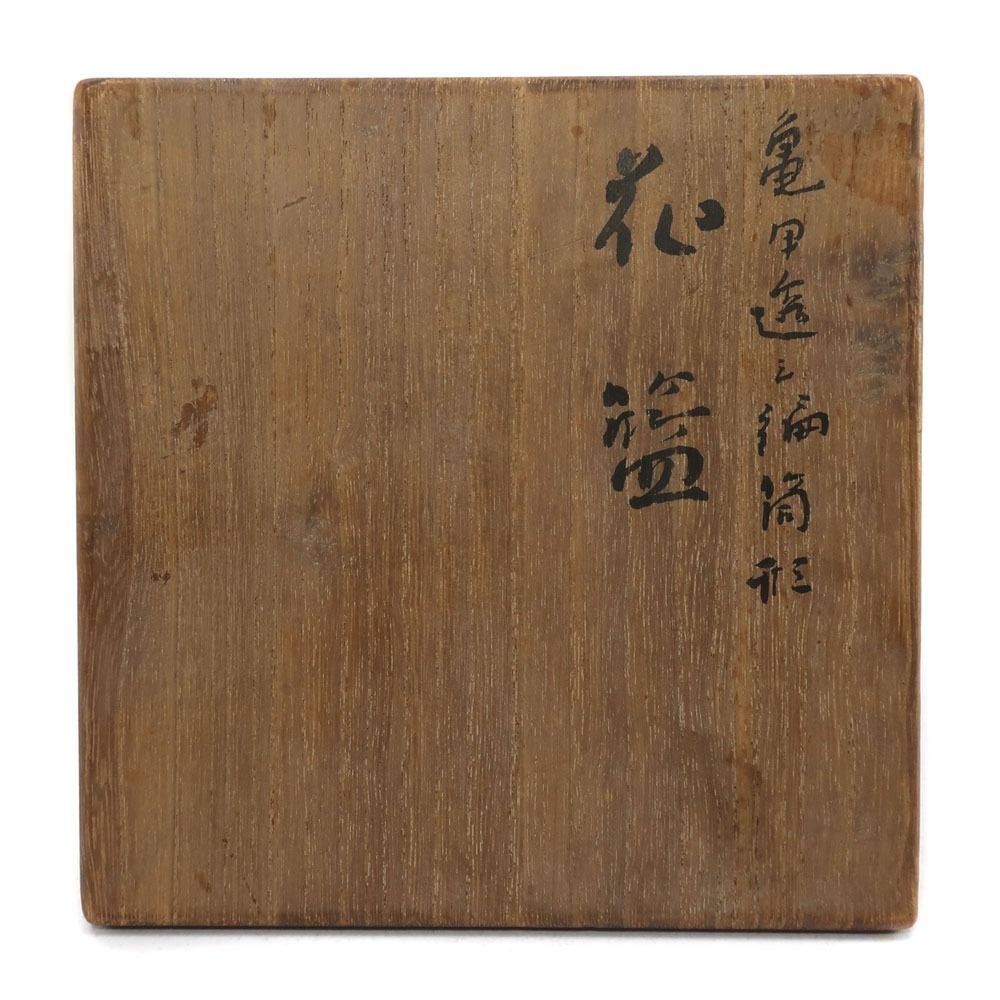 亀甲透シ編筒形
花籃